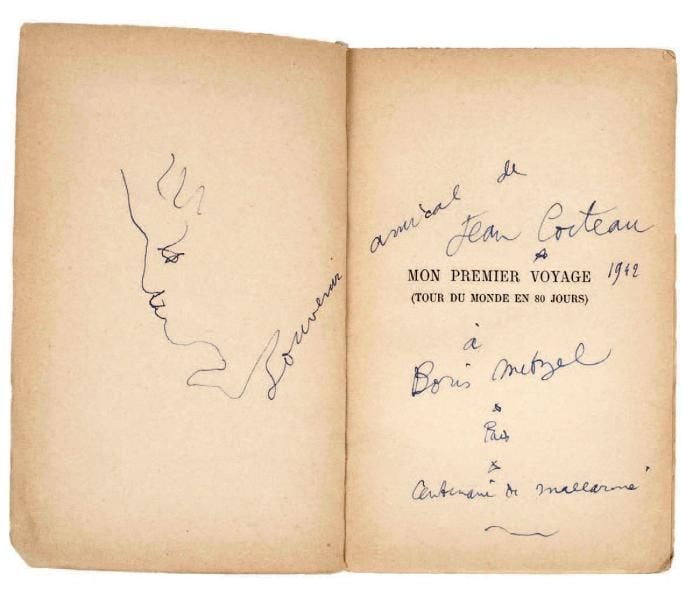 Souvenir amical de
Jean Cocteau
MON PREMIER VOYAGE 1942
(TOUR DU MONDE EN 80 JOURS)
à
Boris Metzel
Paris
Centenaire de Mallarmé